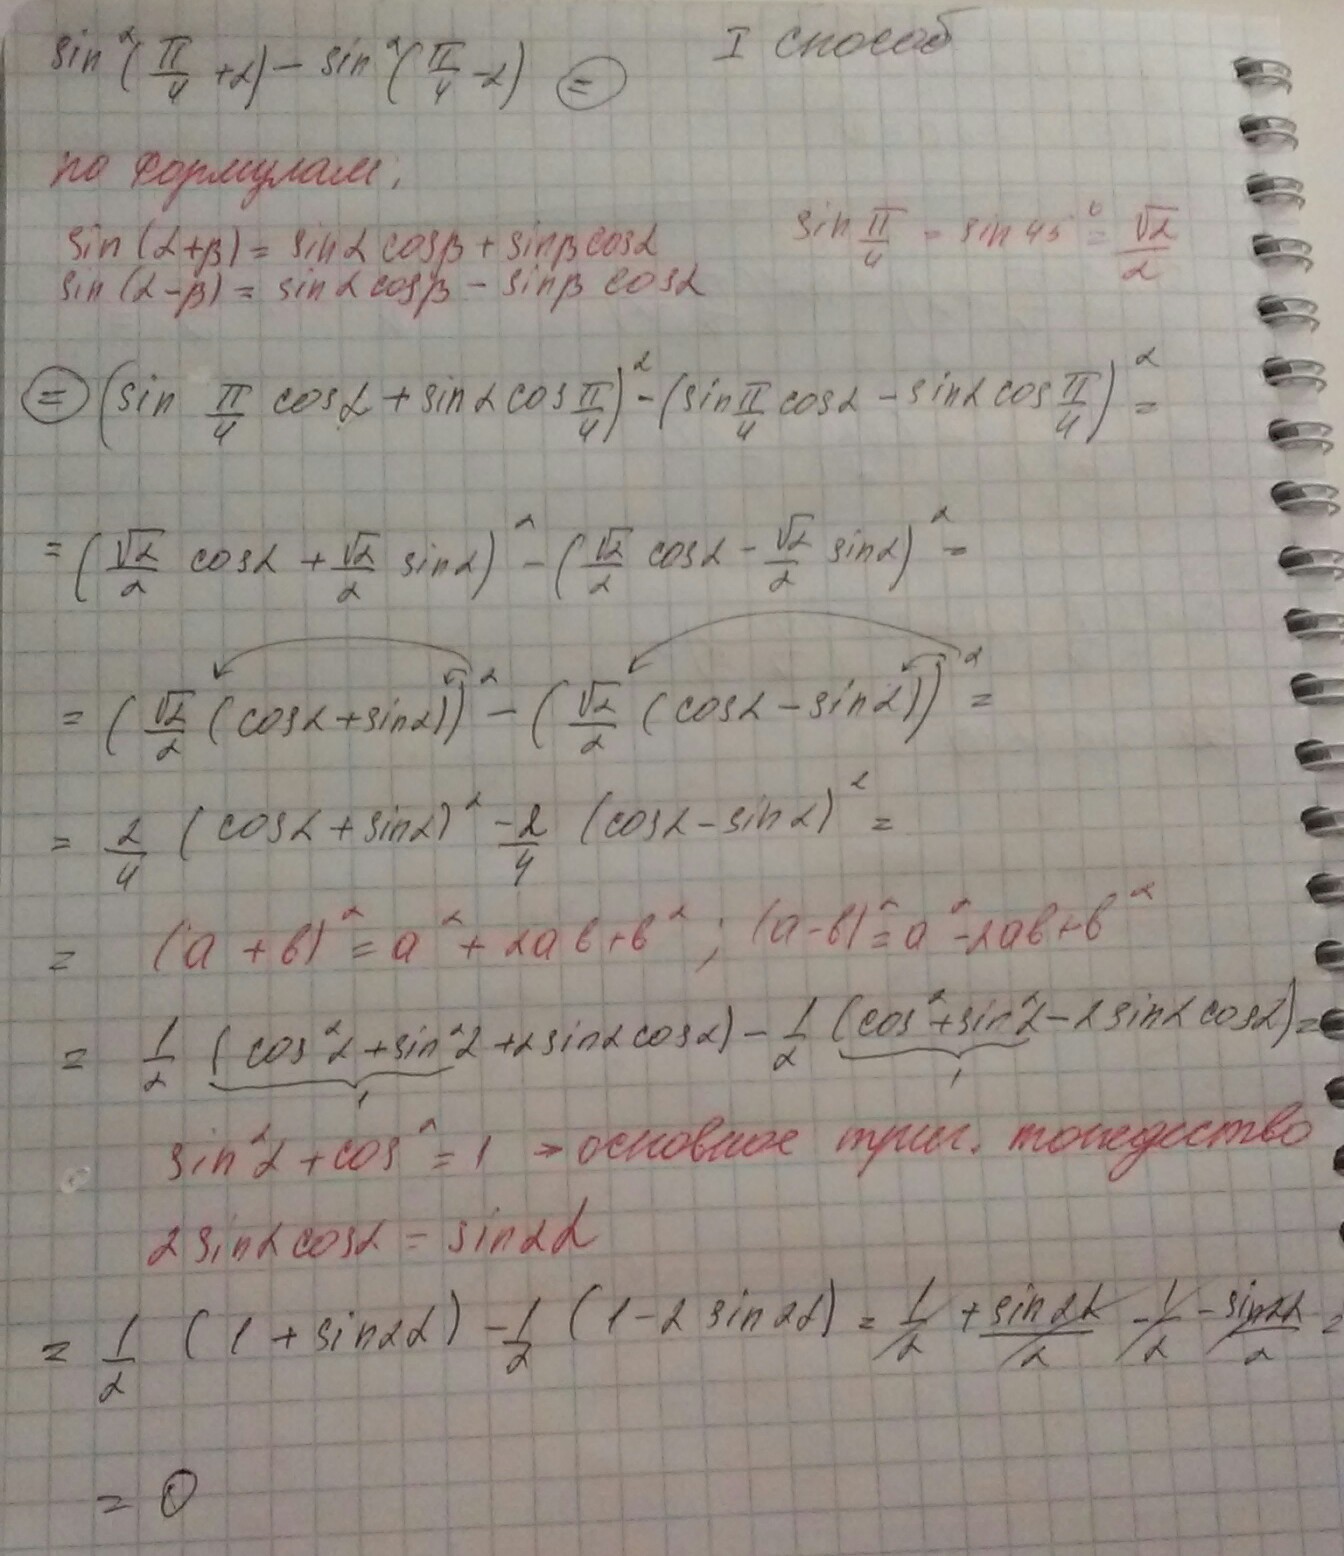 sin²(π/4 + α) – sin²(π/4 - α) = I способ
по формулам:
sin (α+β) = sinα cosβ + sinβ cosα sin π/4 = sin 45° = √2/2
sin (α-β) = sinα cosβ – sinβ cosα
= (sin π/4 cosα + sinα cos π/4)² - (sin π/4 cosα – sinα cos π/4)² =
= (√2/2 cosα + √2/2 sinα)² – (√2/2 cosα – √2/2 sinα)² =
= (√2/2 (cosα + sinα))² – (√2/2 (cosα – sinα))² =
= 2/4 (cosα + sinα)² – 2/4 (cosα – sinα)² =
= (a + b)² = a² + 2ab + b² ; (a-b)² = a² - 2ab + b²
= 1/2 (cos²α + sin²α + 2sinα cosα) – 1/2 (cos² + sin²α – 2sinα cosα) =
1 1
sin²α + cos² = 1 → основное триг. тождество
2 sinα cosα = sin2α
= 1/2 (1 + sin2α) – 1/2 (1 – 2 sin2α) = 1/2 + sin2α/2 – 1/2 – sin2α/2 =
= 0